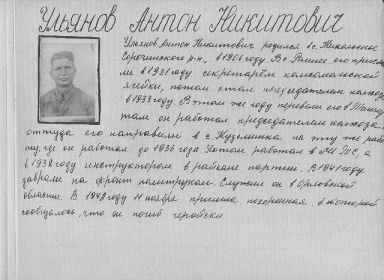 Ульянов Антон Никитович
Ульянов Антон Никитович родился в с. Никольское
Сорочинского р-на, в 1906 году. В с. его присла-
ли в 1931 году секретарём комсомольской
ячейки, потом стал председателем колхоза
в 1933 году. В этом же году перевели его в
там он работал председателем колхоза,
оттуда его направили в с. Кузьминка на ту же рабо
ту, где он работал до 1936 года. Потом работал в МТС, а
в 1938 году инструктором в райкоме партии. В 1941 году
забрали на фронт политруком. Служил он в Орловской
области. В 1942 году 14 ноября пришла похоронная в которой
сообщалось, что он погиб геройски.